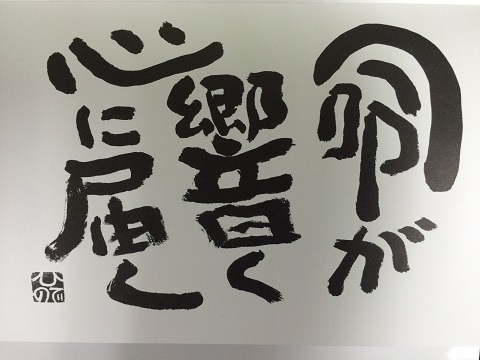 命が
響く
心に届く